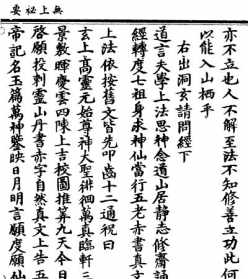 無上祕要
亦不立也人不解至法不知修善立功此何
以能入山栖乎
右出洞玄請問經下
道言夫學上法思神念道山居靜志修齋誦
經轉度七祖身求神仙當行五老赤書真文
上法依按舊文皆先叩齒十二通祝曰
玄上高靈元始尊神大聖徘徊萬真臨軒三
景敷暉慶雲四陳上吉校圖推筭九天今日
啓願投剌靈山丹書赤字自然真文上告五
帝記名玉篇萬神鑒映日月明言願度願仙